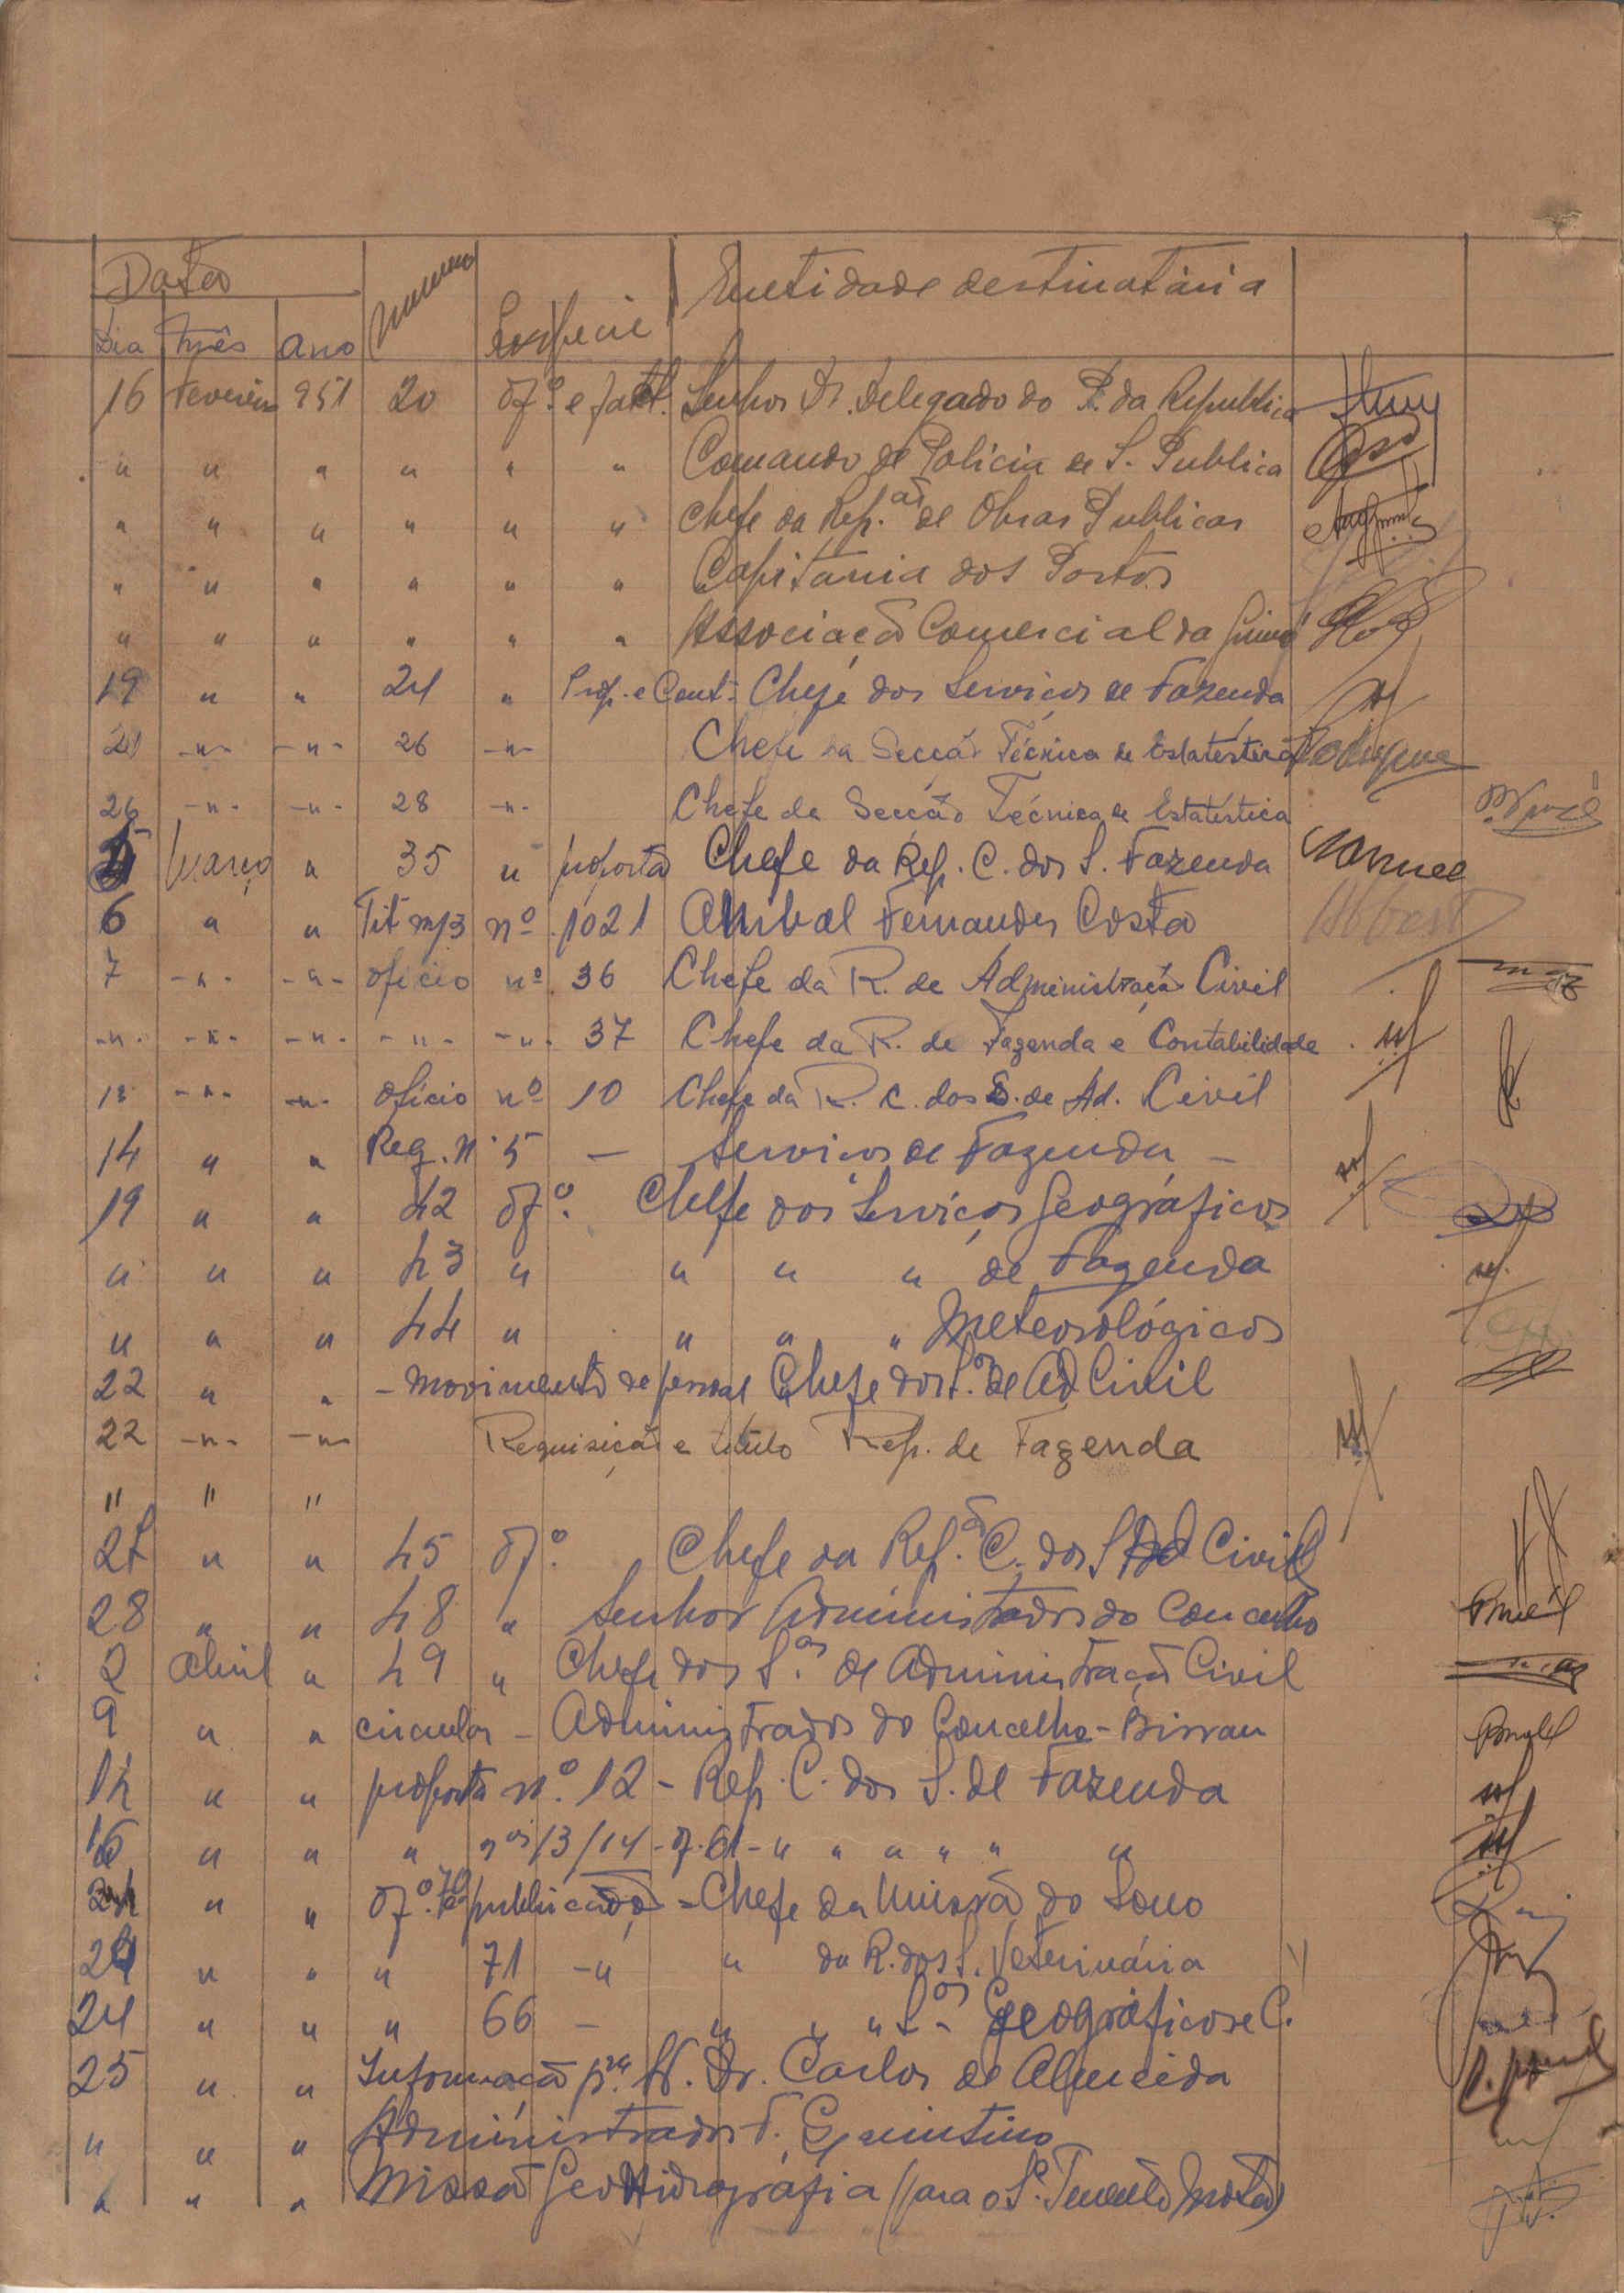 Data Numero Especie Entidade destinatária
Dia mês ano
16 Fevereiro 951 20 of.º e fact. Senhor Dr. Delegado do P. da Republica
" " " " " " Comando de Policia de S. Publica
" " " " " " Chefe da Rep.ão de Obras Publicas
" " " " " " Capitania dos Portos
" " " " " " Associação Comercial da Guiné
19 " " 24 " Prop. e Cont. Chefe dos Serviços de Fazenda
21 -"- -"- 26 -"- Chefe da Secção Técnica de Estatística Rodrigues
26 -"- -"- 28 -"- Chefe da Secção Técnica de Estatística
5 Março " 35 " proposta Chefe da Rep. C. dos S. Fazenda Manuel
6 " " Tit m/3 nº 1021 Anibal Fernandes Costa
7 -"- -"- oficio nº 36 Chefe da R. de Administração Civil
-"- -"- -"- -"- -"- 37 Chefe da R. de Fazenda e Contabilidade
13 -"- -"- oficio nº 10 Chefe da R. C. dos S. de Ad. Civil
14 " " Req. n. 5 — Serviços de Fazenda —
19 " " 42 of.º Chefe dos Serviços Geográficos
" " " 43 " " " " de Fazenda
" " " 44 " " " " Meteorológicos
22 " " - movimento de pessoal Chefe dos S.os de Ad Civil
22 -"- -"- Requisição e titulo Rep. de Fazenda
" " "
27 " " 45 of.º Chefe da Rep.ão C. dos S Ad Civil
28 " " 48 " Senhor Administrador do Concelho
2 Abril " 49 " Chefe dos S.os de Administração Civil
9 " " circular - Administrador do Concelho - Bissau
14 " " proposta n.º 12 - Rep. C. dos S. de Fazenda
16 " " " nos 13/14 - of. 61 - " " " " " "
24 " " of.º 70 publicação - Chefe da Missão do Sono
24 " " " 71 -" " da R. dos S. Veterinária
24 " " " 66 - " " " S.os Geográficos e C.
25 " " Informação p.ra Sr. Dr. Carlos de Almeida
" " " Administrador F. Quintino
" " " Missão Geohidrográfia (para o S. Tenente Mota)